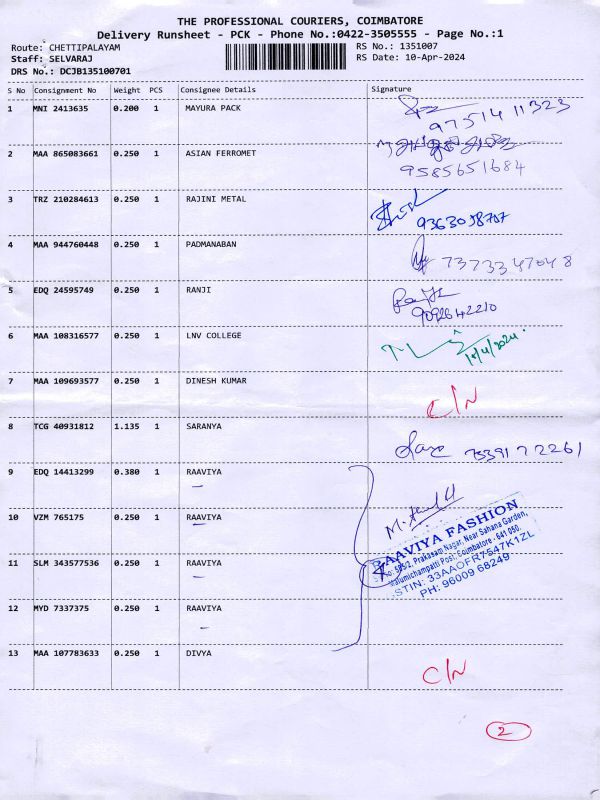 THE PROFESSIONAL COURIERS, COIMBATORE
Delivery Runsheet - PCK - Phone No.:0422-3505555 - Page No.:1
Route: CHETTIPALAYAM RS No.: 1351007
Staff: SELVARAJ RS Date: 10-Apr-2024
DRS No.: DCJB135100701
S No Consignment No Weight PCS Consignee Details Signature
1 MNI 2413635 0.200 1 MAYURA PACK
9751411323
2 MAA 865083661 0.250 1 ASIAN FERROMET
9585651684
3 TRZ 210284613 0.250 1 RAJINI METAL
9363058707
4 MAA 944760448 0.250 1 PADMANABAN
7373347048
5 EDQ 24595749 0.250 1 RANJI
9092642210
6 MAA 108316577 0.250 1 LNV COLLEGE
10/4/2024.
7 MAA 109693577 0.250 1 DINESH KUMAR
C/N
8 TCG 40931812 1.135 1 SARANYA
7339172261
9 EDQ 14413299 0.380 1 RAAVIYA
10 VZM 765175 0.250 1 RAAVIYA
RAAVIYA FASHION
Prakasam Nagar, Near Sahana Garden,
Malumichampatti Post, Coimbatore - 641 050.
GSTIN: 33AAOFR7547K1ZL
PH: 96009 68249
11 SLM 343577536 0.250 1 RAAVIYA
12 MYD 7337375 0.250 1 RAAVIYA
13 MAA 107783633 0.250 1 DIVYA
C/N
2